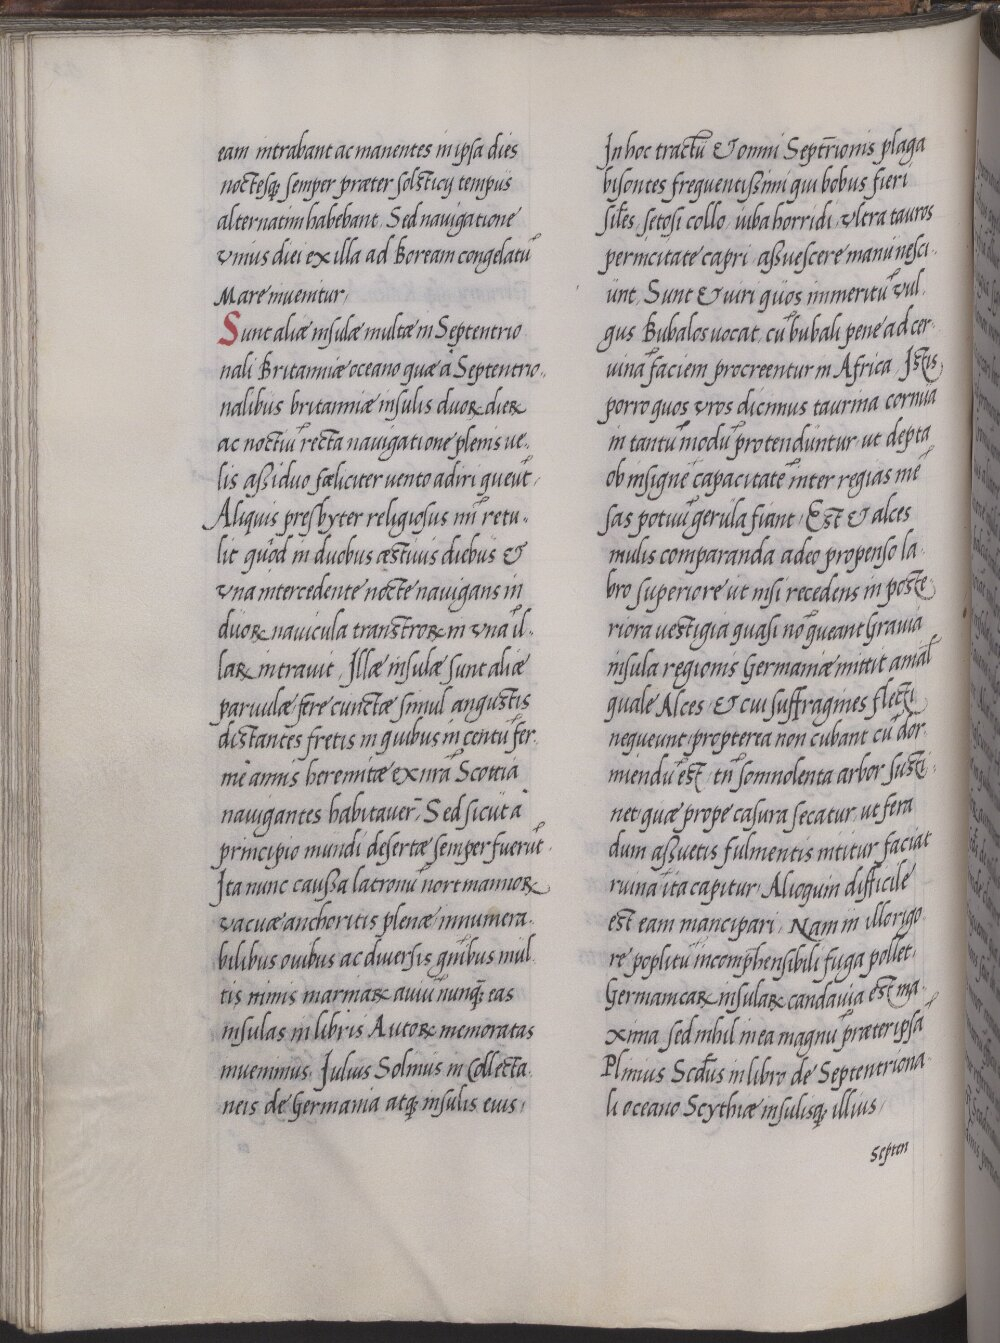 eam intrabant ac manentes in ipsa dies
noctesq; semper præter solsticij tempus
alternatim habebant. Sed nauigatione
vnius diei ex illa ad Boream congelatū
Mare inuenitur,
Sunt aliæ insulæ multæ in Septentrio
nali Britanniæ oceano quæ à Septentrio.
nalibus britanniæ insulis duoꝝ dieꝝ
ac noctiū recta nauigatione plenis ue.
lis assiduo fæliciter vento adiri queūt,
Aliquis presbyter religiosus mī retu.
lit quòd in duobus æstiuis diebus &
vna intercedente nocte nauigans in
duoꝝ nauicula transtroꝝ in vnā il.
laꝝ intrauit, Illæ insulæ sunt aliæ
paruulæ fere cunctæ simul angustis
distantes fretis in quibus in centū fer.
mè annis heremitæ ex nrā Scottia
nauigantes habitauer̄, Sed sicut à
principio mundi desertæ semper fuerūt.
Ita nunc caussa latronū nortmannoꝝ
vacuæ anchoritis plenæ innumera.
bilibus ouibus ac diuersis gn̄ibus mul
tis nimis marinaꝝ auiū nunq̄; eas
insulas in libris Autoꝝ memoratas
inuenimus, Julius Solinus in Collecta.
neis de Germania atq; insulis eius,
In hoc tractū & omni Sept̄rionis plaga
bisontes frequentissimi qui bobus fieri
sil̄es, setosi collo, iuba horridi, vltra tauros
pernicitate capri, assuescere manu nesci.
unt, Sunt & uiri quos immeritū vul.
gus Bubalos uocat, cū bubali pene ad cer.
uinā faciem procreentur in Africa, Istis
porro quos vros dicimus taurina cornua
in tantū modū protenduntur ut depta
ob insignē capacitatē inter regias mē
sas potuū gerula fiant, Est & alces
mulis comparanda adeo propenso la.
bro superiore ut nisi recedens in poste
riora vestigia quasi nō queant Grauia
insula regionis Germaniæ mittit amāl
quale Alces & cui suffragines flecti
nequeunt, propterea non cubant cū dor.
miendū est, tn̄ somnolenta arbor susti.
net quæ prope casura secatur, ut fera
dum assuetis fulmentis nititur faciat
ruinā ita capitur, Alioquin difficile
est eam mancipari, Nam in illo rigo.
re poplitū incomp̄hensibili fuga pollet,
Germanicaꝝ insulaꝝ candauia est ma.
xima sed nihil in ea magnū præter ipsā
Plinius Scd̄us in libro de Septentriona.
li oceano Scythiæ insulisq; illius,
Septen